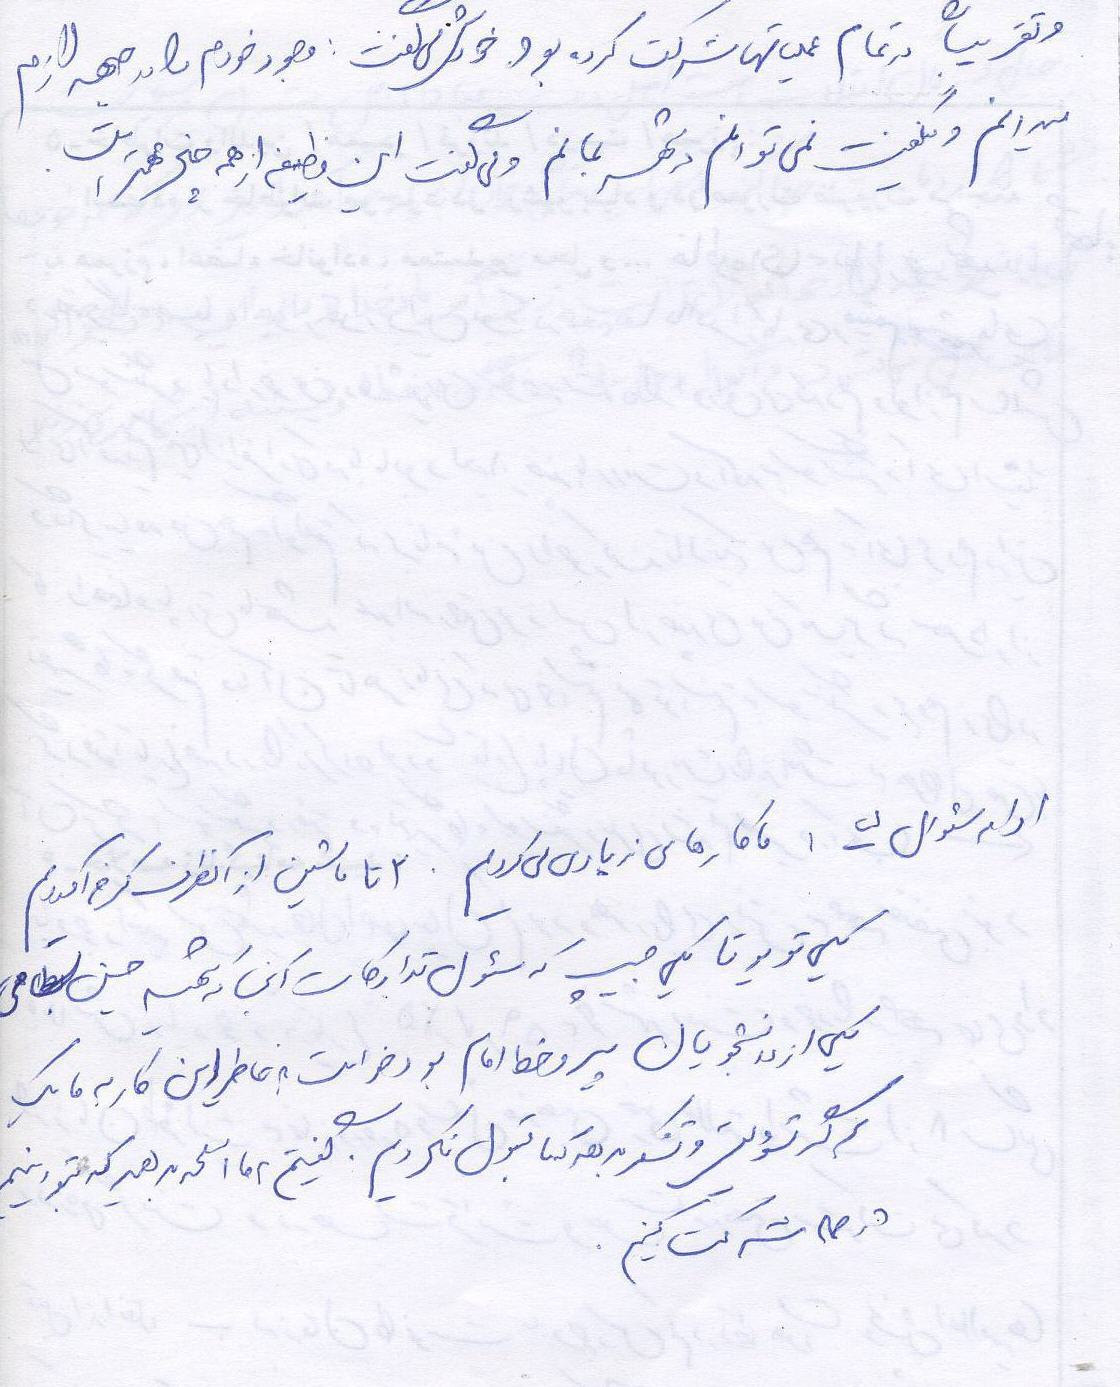 و تقریباً در تمام عملیاتها شرکت کرده بود. خودش می گفت: وجود خودم را در جبهه لازم
میدانم و میگفت نمی توانم در شهر بمانم و می گفت این وظیفه از همه چیز مهمتر است.
ادامه سئوال ۱ ما کارهای زیادی می کردیم. ۲ تا ماشین از آنطرف گرفته آوردیم
یکی تویوتا یکی جیپ که مسئول تدارکات آنجا که حسین
یکی از دانشجویان پیرو خط امام بود خواست بخاطر این کار به ما یک
تشویقی و تشکر بدهد که ما قبول نکردیم. گفتیم به ما اسلحه بدهید که بتوانیم
در حمله شرکت کنیم.